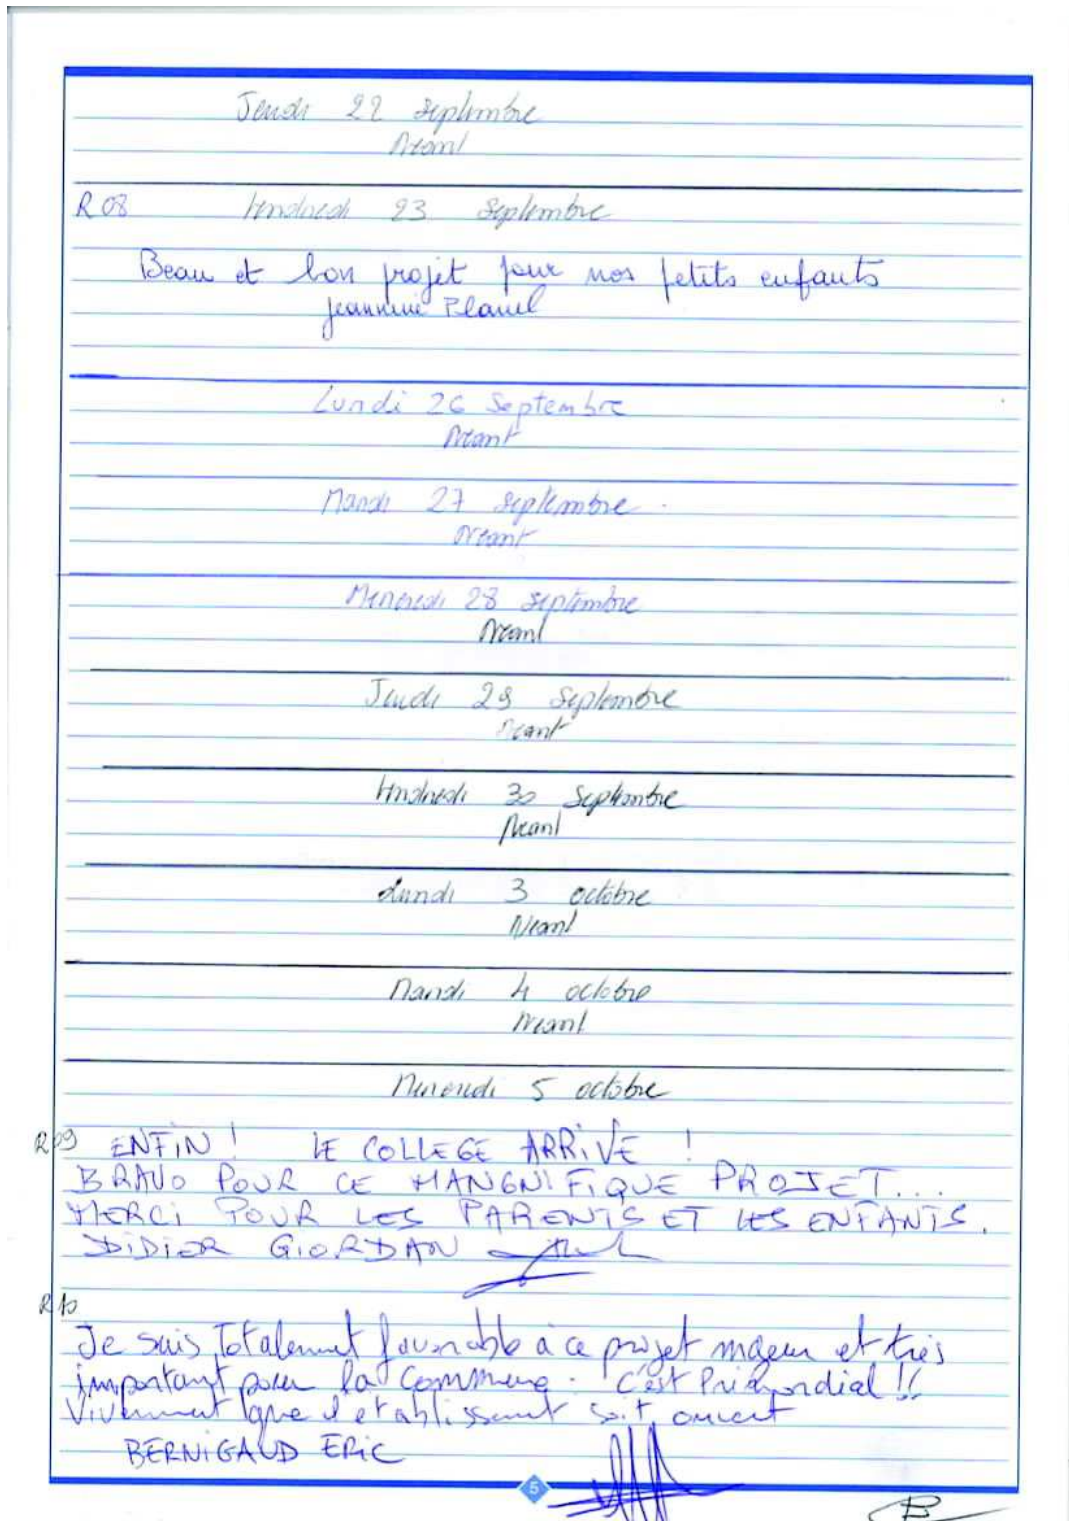 Jeudi 22 septembre
Néant
R08 Vendredi 23 Septembre
Beau et bon projet pour nos petits enfants
Jeannine Planel
Lundi 26 Septembre
Néant
Mardi 27 septembre
Néant
Mercredi 28 septembre
Néant
Jeudi 29 Septembre
Néant
Vendredi 30 Septembre
Néant
Lundi 3 octobre
Néant
Mardi 4 octobre
Néant
Mercredi 5 octobre
R09 ENFIN ! LE COLLEGE ARRIVE !
BRAVO POUR CE MANGNIFIQUE PROJET...
MERCI POUR LES PARENTS ET LES ENFANTS.
DIDIER GIORDAN
R10
Je suis Totalement favorable à ce projet majeur et très
important pour la Commune. C'est Primordial !!
Vivement que l'etablissement soit ouvert
BERNIGAUD ERIC
5